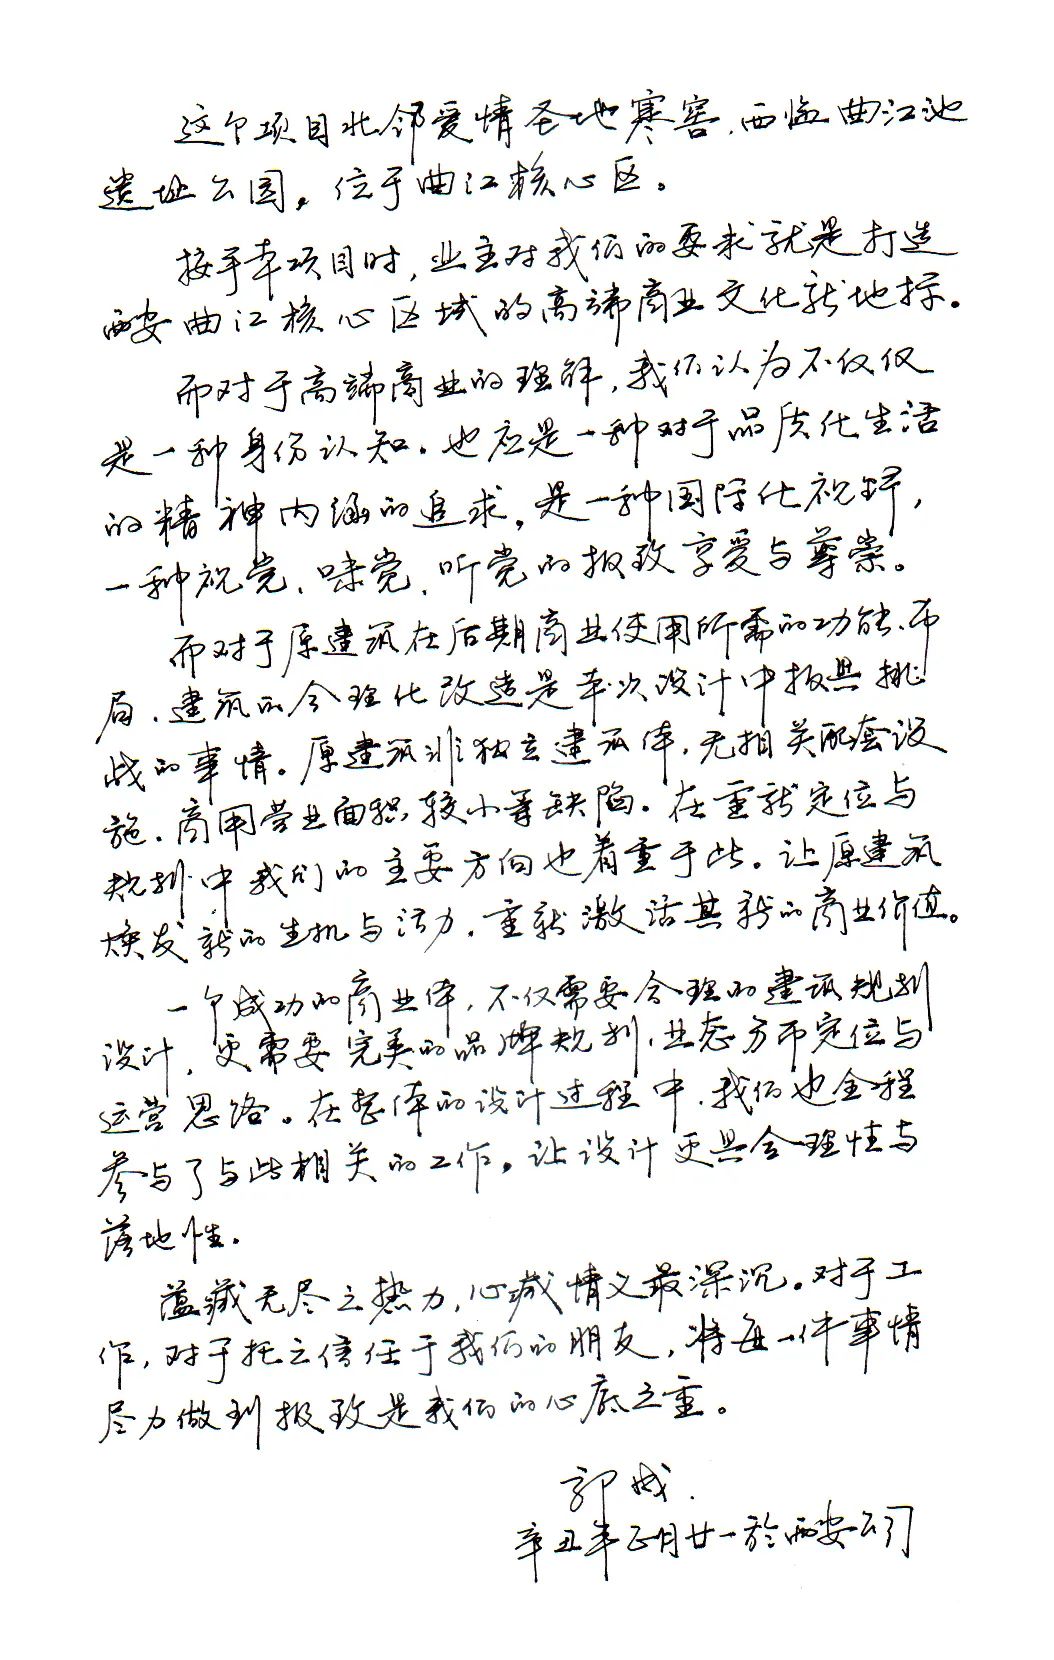 这个项目北邻爱情圣地寒窑、西临曲江池
遗址公园，位于曲江核心区。
接手本项目时，业主对我们的要求就是打造
西安曲江核心区域的高端商业文化新地标。
而对于高端商业的理解，我们认为不仅仅
是一种身份认知。也应是一种对于品质化生活
的精神内涵的追求，是一种国际化视野，
一种视觉、味觉、听觉的极致享受与尊崇。
而对于原建筑在后期商业使用所需的功能、布
局、建筑的合理化改造是本次设计中极具挑
战的事情。原建筑非独立建筑体，无相关配套设
施、商用营业面积较小等缺陷。在重新定位与
规划中我们的主要方向也着重于此。让原建筑
焕发新的生机与活力，重新激活其新的商业价值。
一个成功的商业体，不仅需要合理的建筑规划
设计，更需要完美的品牌规划、业态分布定位与
运营思路。在整体的设计过程中，我们也全程
参与了与此相关的工作，让设计更具合理性与
落地性。
蕴藏无尽之热力，心藏情义最深沉。对于工
作，对于托之信任于我们的朋友，将每一件事情
尽力做到极致是我们的心底之重。
郭成.
辛丑年正月廿一於西安公司